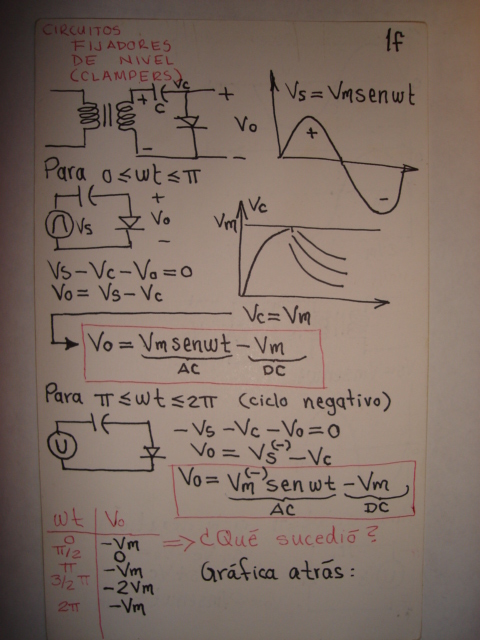 CIRCUITOS
FIJADORES
DE NIVEL
(CLAMPERS)
1f
+ C Vc +
Vo
- -
Vs = Vm sen wt
+
-
Para 0 ≤ wt ≤ π
Vs
+
Vo
-
Vm
Vc
Vs - Vc - Vo = 0
Vo = Vs - Vc
Vc = Vm
Vo = Vm sen wt - Vm
AC DC
Para π ≤ wt ≤ 2π (ciclo negativo)
- Vs - Vc - Vo = 0
Vo = Vs(-) - Vc
Vo = Vm(-) sen wt - Vm
AC DC
wt Vo
0 -Vm
π/2 0
π -Vm
3/2 π -2Vm
2π -Vm
=> ¿Qué sucedió?
Gráfica atrás: